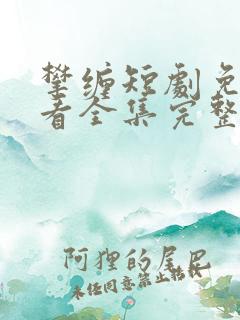 攀缠短剧免
看全集完整
阿狸的尾巴
未经同意禁止转载